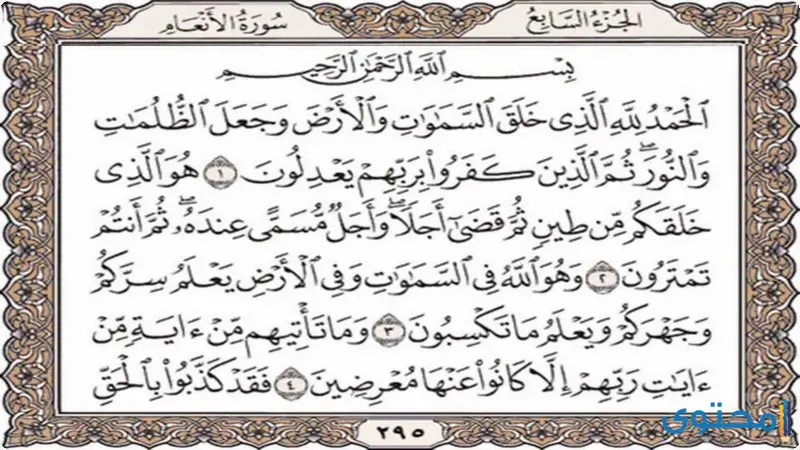 الجزء السابع
سورة الأنعام
بِسْمِ اللَّهِ الرَّحْمَٰنِ الرَّحِيمِ
ٱلْحَمْدُ لِلَّهِ ٱلَّذِى خَلَقَ ٱلسَّمَٰوَٰتِ وَٱلْأَرْضَ وَجَعَلَ ٱلظُّلُمَٰتِ
وَٱلنُّورَ ۖ ثُمَّ ٱلَّذِينَ كَفَرُوا۟ بِرَبِّهِمْ يَعْدِلُونَ ١ هُوَ ٱلَّذِى
خَلَقَكُم مِّن طِينٍ ثُمَّ قَضَىٰٓ أَجَلًا ۖ وَأَجَلٌ مُّسَمًّى عِندَهُۥ ۖ ثُمَّ أَنتُمْ
تَمْتَرُونَ ٢ وَهُوَ ٱللَّهُ فِى ٱلسَّمَٰوَٰتِ وَفِى ٱلْأَرْضِ يَعْلَمُ سِرَّكُمْ
وَجَهْرَكُمْ وَيَعْلَمُ مَا تَكْسِبُونَ ٣ وَمَا تَأْتِيهِم مِّنْ ءَايَةٍ مِّنْ
ءَايَٰتِ رَبِّهِمْ إِلَّا كَانُوا۟ عَنْهَا مُعْرِضِينَ ٤ فَقَدْ كَذَّبُوا۟ بِٱلْحَقِّ
٢٩٥
محتوى